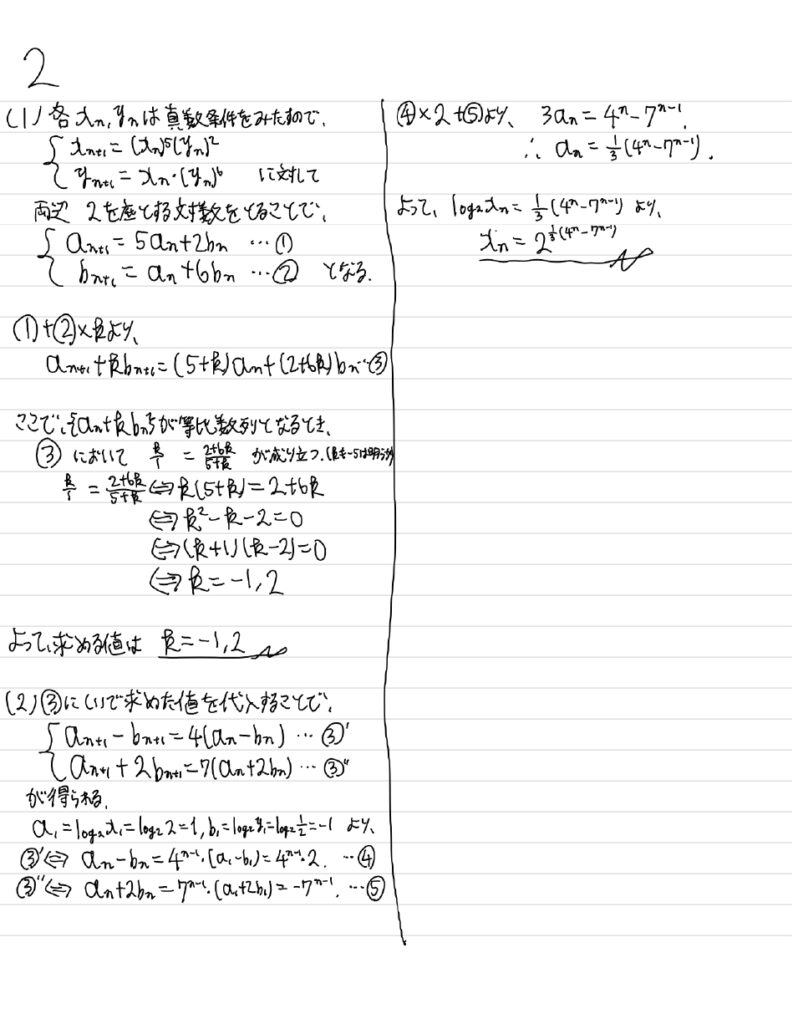 2
(1) 各xₙ, yₙは真数条件をみたすので、
{ xₙ₊₁ = (xₙ)⁵(yₙ)²
{ yₙ₊₁ = xₙ・(yₙ)⁶ に対して
両辺 2を底とする対数をとることで、
{ aₙ₊₁ = 5aₙ+2bₙ …①
{ bₙ₊₁ = aₙ+6bₙ …② となる.
①+②×kより、
aₙ₊₁+kbₙ₊₁=(5+k)aₙ+(2+6k)bₙ…③
ここで、{aₙ+kbₙ}が等比数列となるとき、
③ において k/1 = (2+6k)/(5+k) が成り立つ. (k≠-5は明らか)
k/1 = (2+6k)/(5+k) ⇔ k(5+k)=2+6k
⇔ k²-k-2=0
⇔ (k+1)(k-2)=0
⇔ k=-1,2
よって、求める値は k=-1,2
(2) ③に(1)で求めた値を代入することで、
{ aₙ₊₁-bₙ₊₁=4(aₙ-bₙ) …③'
{ aₙ₊₁+2bₙ₊₁=7(aₙ+2bₙ) …③''
が得られる.
a₁=log₂x₁=log₂2=1, b₁=log₂y₁=log₂1/2=-1 より、
③'⇔ aₙ-bₙ=4ⁿ⁻¹・(a₁-b₁)=4ⁿ⁻¹・2. …④
③''⇔ aₙ+2bₙ=7ⁿ⁻¹・(a₁+2b₁)=-7ⁿ⁻¹. …⑤
④×2+⑤より、 3aₙ=4ⁿ-7ⁿ⁻¹.
∴ aₙ=1/3(4ⁿ-7ⁿ⁻¹).
よって、log₂xₙ=1/3(4ⁿ-7ⁿ⁻¹) より、
xₙ=2^{1/3(4ⁿ-7ⁿ⁻¹)}